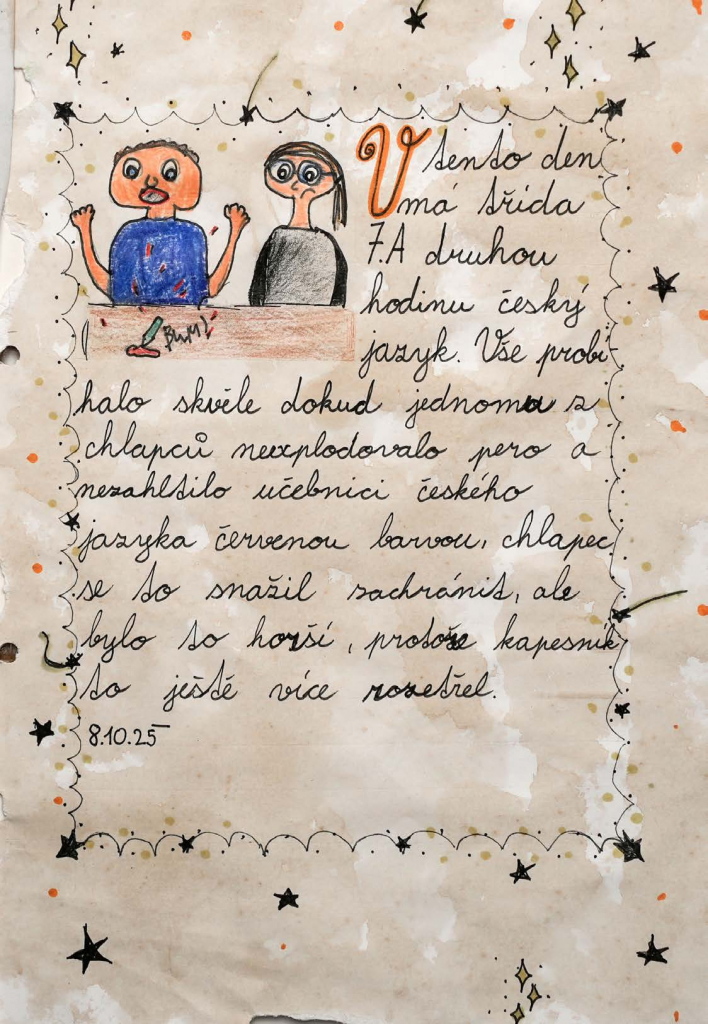 V tento den
má třída
7.A druhou
hodinu český
jazyk. Vše probí-
halo skvěle dokud jednomu z
chlapců neexplodovalo pero a
nezahltilo učebnici českého
jazyka červenou barvou, chlapec
se to snažil zachránit, ale
bylo to horší, protože kapesník
to ještě více rozetřel.
8.10.25
BUM!